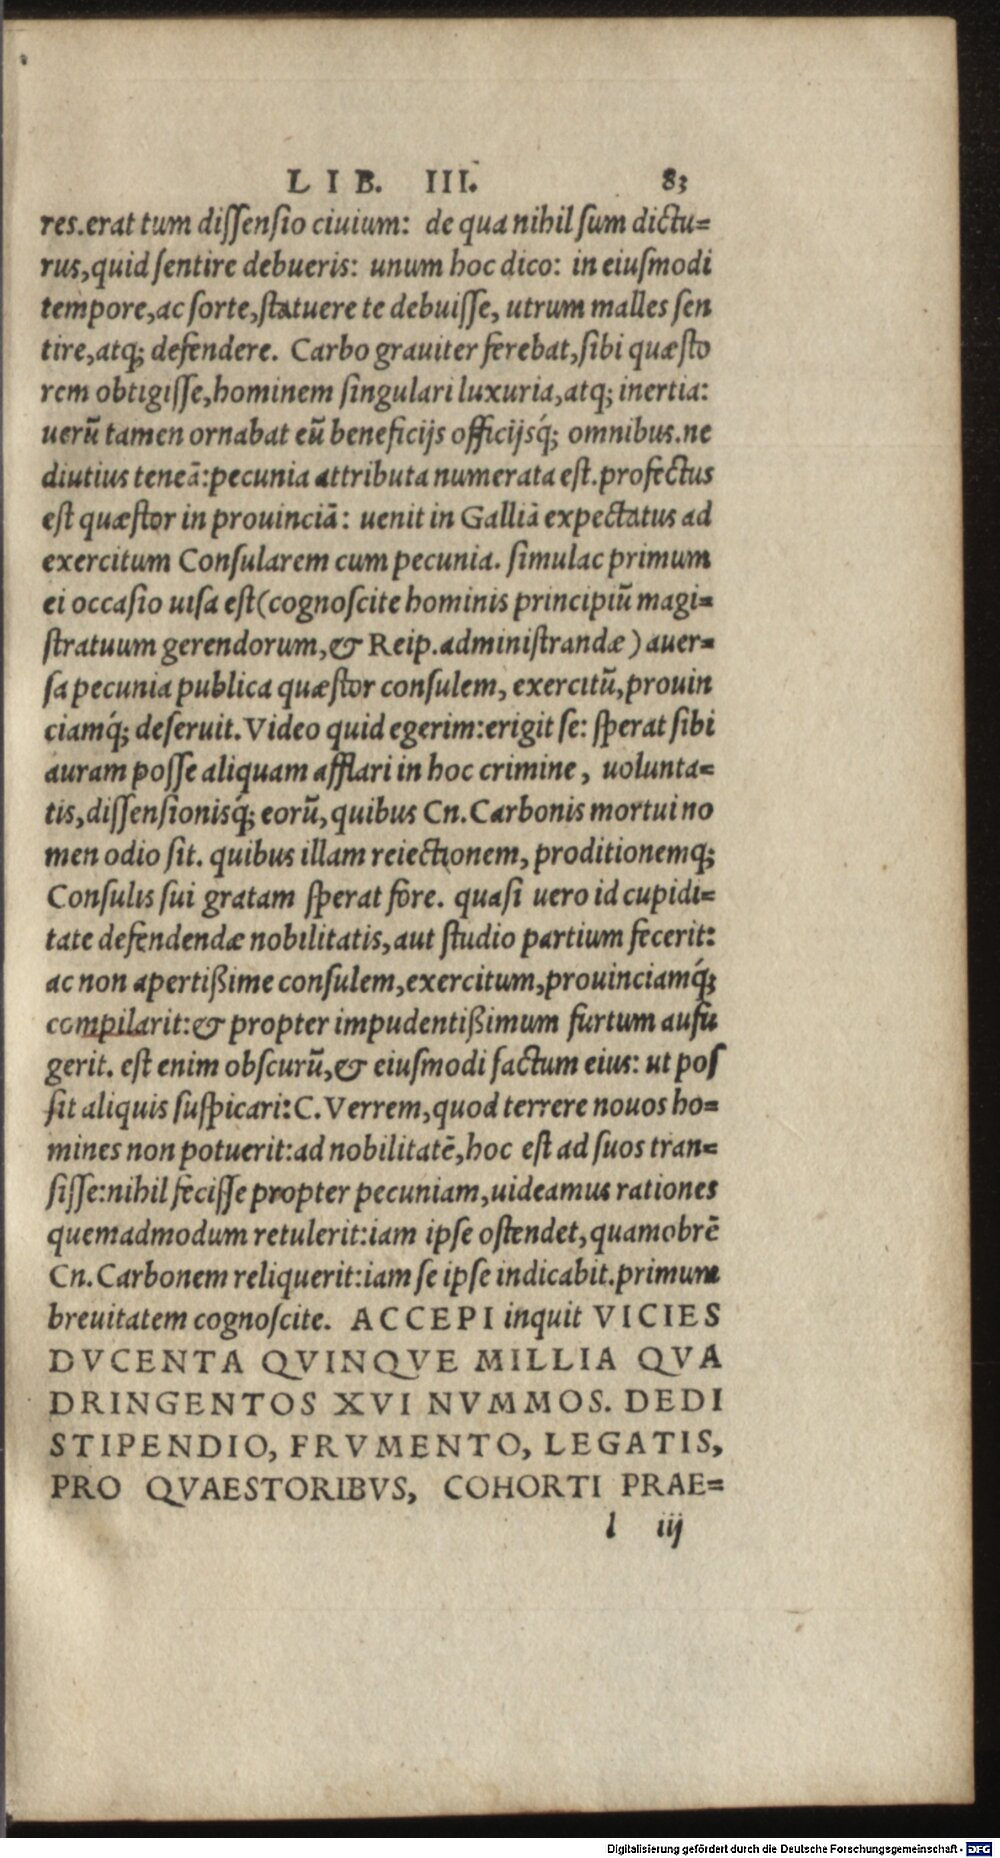 LIB. III. 83
res.erat tum diſſenſio ciuium: de qua nihil ſum dictu=
rus,quid ſentire debueris: unum hoc dico: in eiuſmodi
tempore,ac ſorte,ſtatuere te debuiſſe, utrum malles ſen
tire,atq; defendere. Carbo grauiter ferebat,ſibi quæſto
rem obtigiſſe,hominem ſingulari luxuria,atq; inertia:
uerū tamen ornabat eū beneficijs officijsq́; omnibus.ne
diutius teneā:pecunia attributa numerata eſt.profectus
eſt quæſtor in prouinciā: uenit in Galliā expectatus ad
exercitum Conſularem cum pecunia. ſimulac primum
ei occaſio uiſa eſt(cognoſcite hominis principiū magi=
ſtratuum gerendorum,& Reip.adminiſtrandæ) auer=
ſa pecunia publica quæſtor conſulem, exercitū,prouin
ciamq́; deſeruit. Video quid egerim:erigit ſe: ſperat ſibi
auram poſſe aliquam afflari in hoc crimine, uolunta=
tis,diſſenſionisq́; eorū,quibus Cn.Carbonis mortui no
men odio ſit. quibus illam reiectionem, proditionemq;
Conſulis ſui gratam ſperat fore. quaſi uero id cupidi=
tate defendendæ nobilitatis,aut ſtudio partium fecerit:
ac non apertißime conſulem,exercitum,prouinciamq́;
compilarit:& propter impudentißimum furtum aufu
gerit. eſt enim obſcurū,& eiuſmodi factum eius: ut poſ
ſit aliquis ſuſpicari: C. Verrem,quod terrere nouos ho=
mines non potuerit:ad nobilitatē,hoc eſt ad ſuos tran=
ſiſſe:nihil feciſſe propter pecuniam,uideamus rationes
quemadmodum retulerit:iam ipſe oſtendet,quamobrē
Cn.Carbonem reliquerit:iam ſe ipſe indicabit.primum
breuitatem cognoſcite. ACCEPI inquit VICIES
DVCENTA QVINQVE MILLIA QVA
DRINGENTOS XVI NVMMOS. DEDI
STIPENDIO, FRVMENTO, LEGATIS,
PRO QVAESTORIBVS, COHORTI PRAE=
l iij
Digitalisierung gefördert durch die Deutsche Forschungsgemeinschaft - DFG